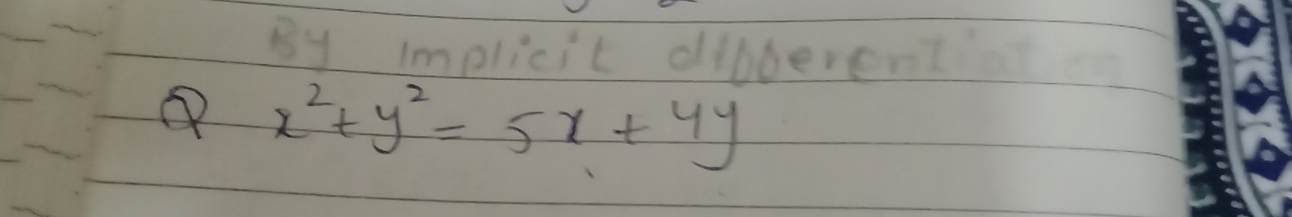 By implicit differentiation
Q x² + y² = 5x + 4y